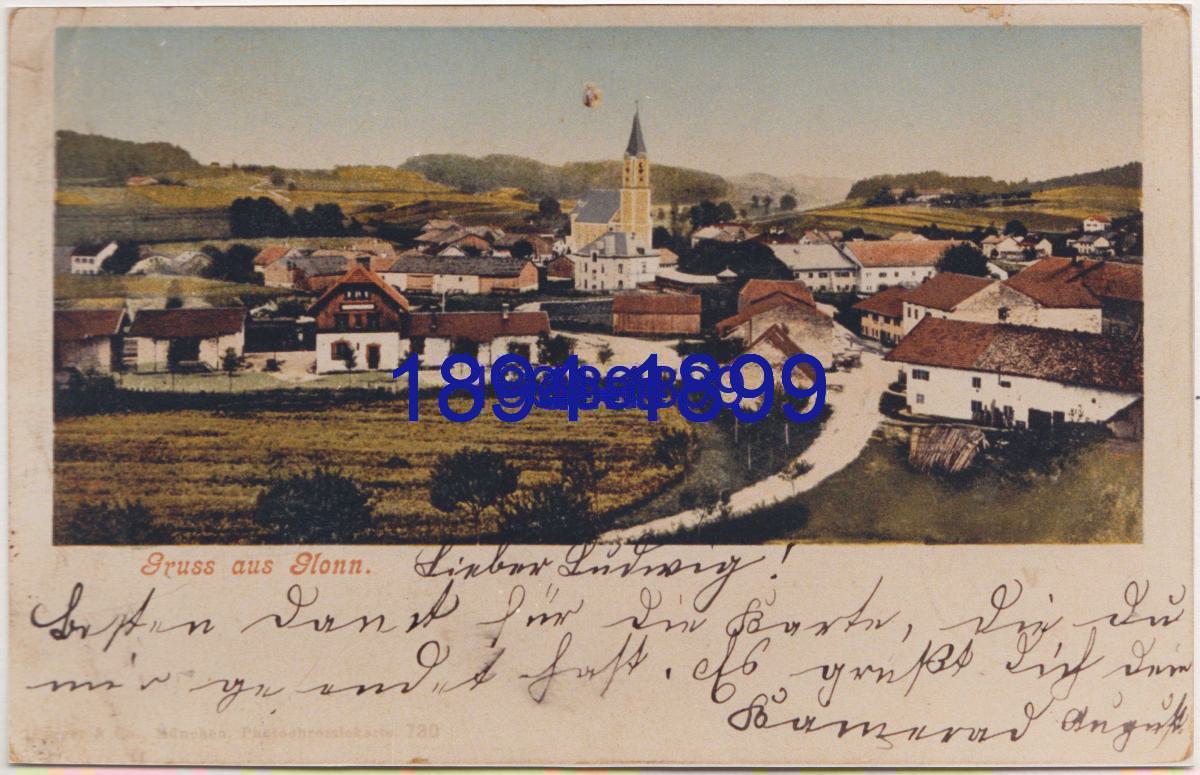 1894-1899
Gruss aus Glonn.
Lieber Ludwig!
Besten Dank für die Karte, die du
mir gesendet hast. Es grüßt dich dein
Kamerad August.
München, Photochromiekarte. 730